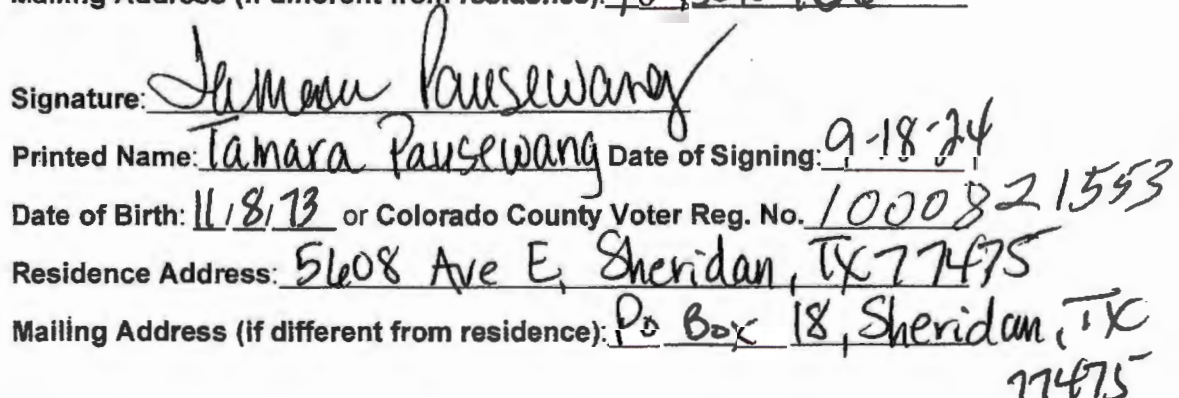 Mailing Address (if different from residence):
Signature: Tamara Pausewang
Printed Name: Tamara Pausewang Date of Signing: 9-18-24
Date of Birth: 11/8/73 or Colorado County Voter Reg. No. 1000821553
Residence Address: 5608 Ave E, Sheridan, TX 77475
Mailing Address (if different from residence): Po Box 18, Sheridan, TX
77475